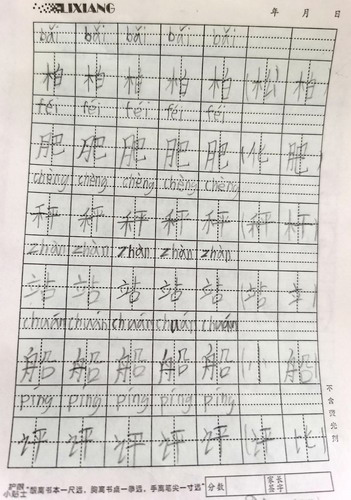 LIXIANG 年 月 日
bǎi bǎi bǎi bǎi bǎi
柏 柏 柏 柏 柏 (松) 柏
féi féi féi féi féi
肥 肥 肥 肥 肥 (化 肥)
chèng chèng chèng chèng chèng
秤 秤 秤 秤 秤 (秤 杆)
zhàn zhàn zhàn zhàn zhàn
站 站 站 站 站 (站 )
chuán chuán chuán chuán chuán
船 船 船 船 船 ( 船)
píng píng píng píng píng
评 评 评 评 评 (评 比)
不含荧光剂
护眼小贴士 "眼离书本一尺远,胸离书桌一拳远,手离笔尖一寸远" 分数 家长签字